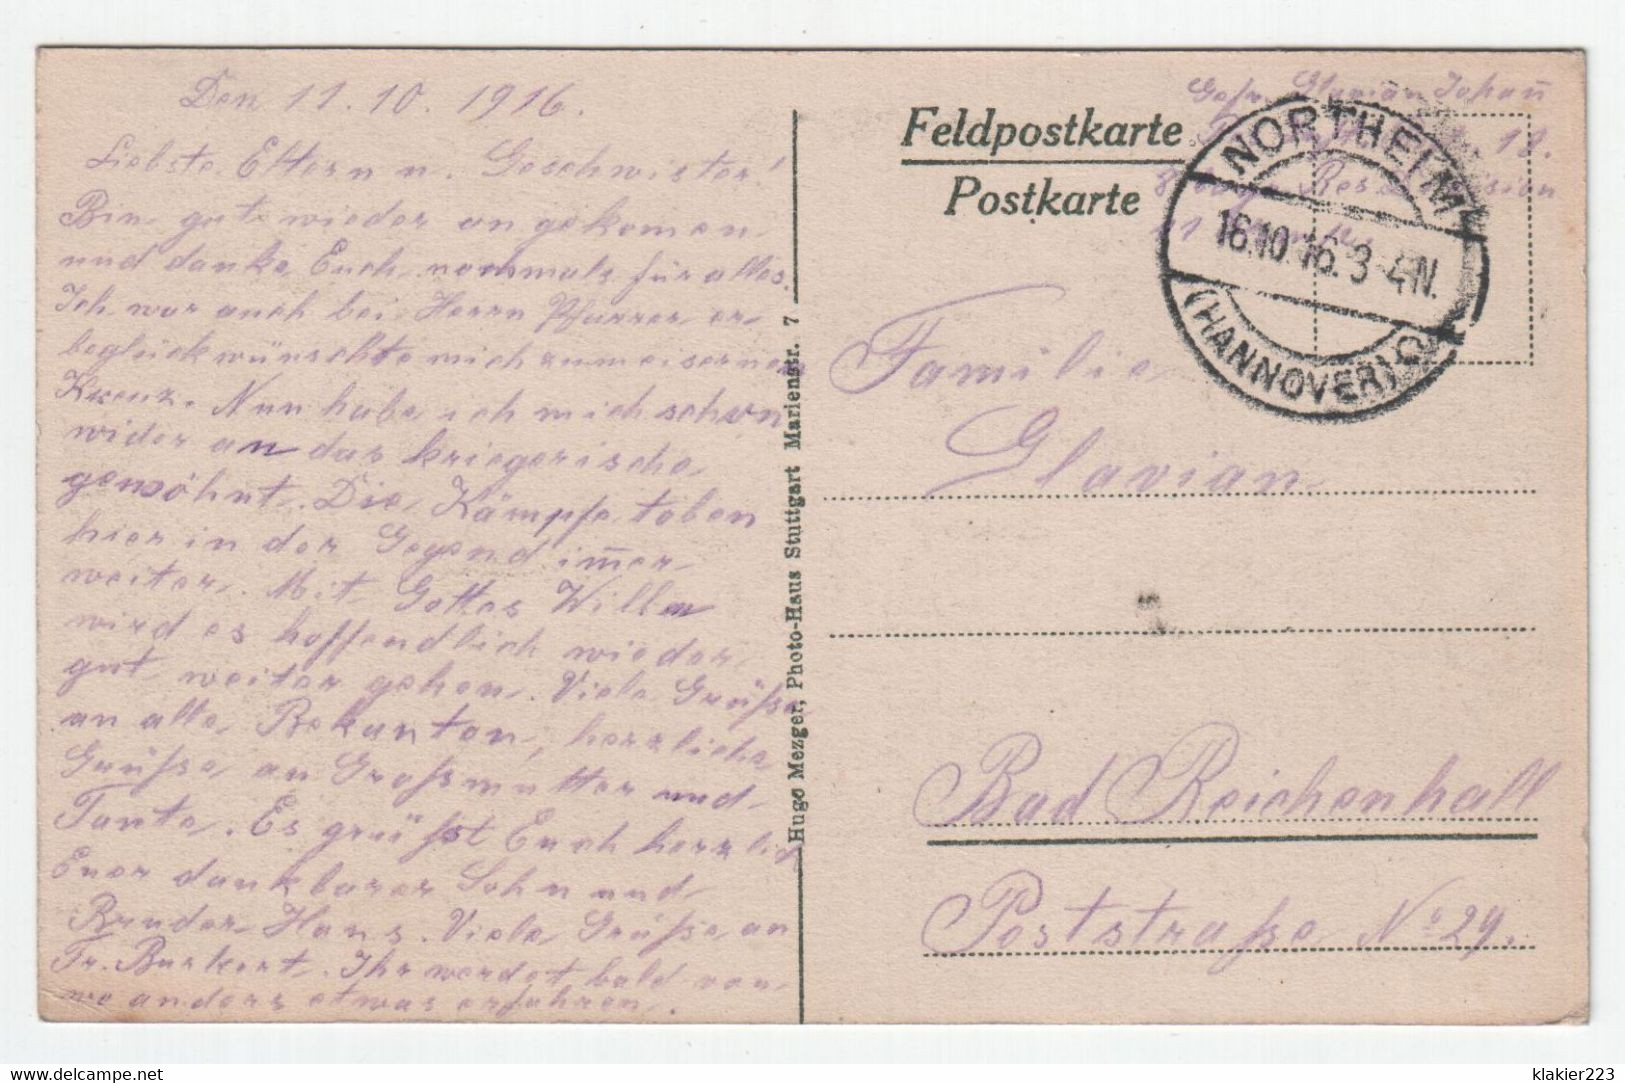 Den 11. 10. 1916.
Liebste Eltern u. Geschwister!
Bin gut wieder an gekomen
und danke Euch nochmals für alles.
Ich war auch bei Herrn Pfarrer er
beglückwünschte mich zum eisernen
Kreuz. Nun habe ich mich schon
wider an das kriegerische
gewöhnt. Die Kämpfe toben
hier in der Gegend im̅er
weiter. Mit Gottes Willen
wird es hoffendlich wieder
gut weiter gehen. Viele Grüße
an alle Bekanten, herzliche
Grüße an Großmutter und
Tante. Es grüßt Euch herzlich
Euer dankbarer Sohn und
Bruder Hans. Viele Grüße an
Fr. Burkert. Ihr werdet bald von
wo anders etwas erfahren.
Hugo Mezger, Photo-Haus Stuttgart Marienstr. 7
Feldpostkarte
Postkarte
Gefr. Glavian Johan̅
12.
Res. Division
11
NORTHEIM
16.10.16. 3-4N.
(HANNOVER)
Familie
Glavian
Bad Reichenhall
Poststraße No 29.
www.delcampe.net
klakier223